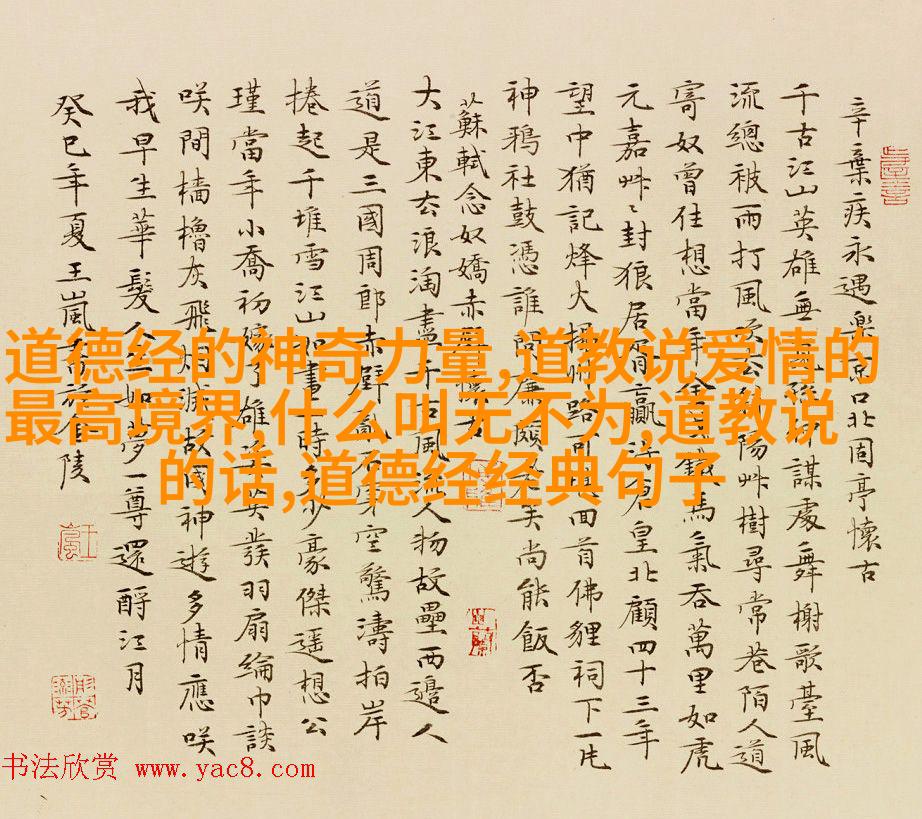 辛棄疾永遇樂京口北固亭懷古
千古江山英雄無覓孫仲謀處舞榭歌臺風
流總被雨打風吹去斜陽艸樹尋常巷陌人道
寄奴曾住想當年金戈鐵馬氣吞萬里如虎
元嘉艸〻封狼居胥贏得倉皇北顧四十三年
望中猶記烽火揚州路可堪回首佛貍祠下一片
神鴉社鼓憑誰問廉頗老矣尚能飯否
蘇軾念奴嬌赤壁懷古
大江東去浪淘盡千古風流人物故壘西邊人
道是三國周郎赤壁亂石穿空驚濤拍岸
捲起千堆雪江山如畫一時多少豪傑遥想公
瑾當年小喬初嫁了雄姿英發羽扇綸巾談
咲間檣櫓灰飛烟滅故國神遊多情應咲
我早生華髮人生如夢一尊還酹江月
癸巳年夏王嵐書於金陵
道德经的神奇力量,道教说爱情的
最高境界,什么叫无不为,道教说
的话,道德经经典句子
书法欣赏 www.yac8.com